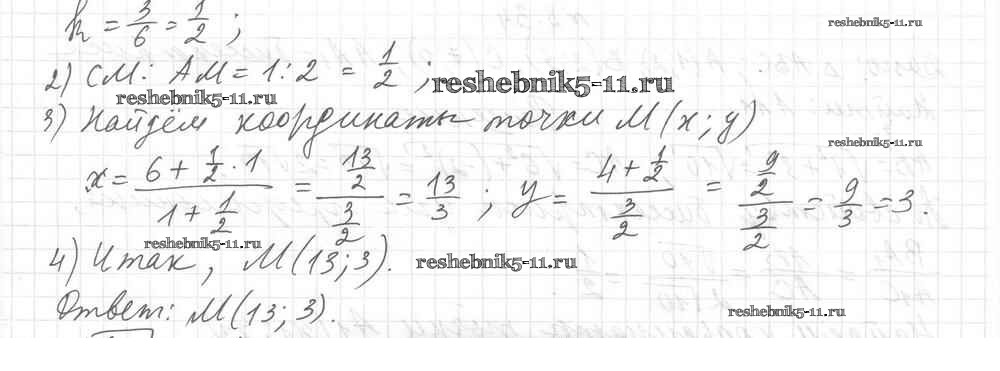 k = 3/6 = 1/2 ;
reshebnik5-11.ru
2) СМ : АМ = 1 : 2 = 1/2 ;
reshebnik5-11.ru
reshebnik5-11.ru
3) Найдём координаты точки М(х ; у)
reshebnik5-11.ru
x = (6 + 1/2 · 1)/(1 + 1/2) = (13/2)/(3/2) = 13/3 ; y = (4 + 1/2)/(3/2) = (9/2)/(3/2) = 9/3 = 3.
reshebnik5-11.ru
4) Итак, М(13 ; 3).
reshebnik5-11.ru
Ответ: М(13 ; 3).
reshebnik5-11.ru